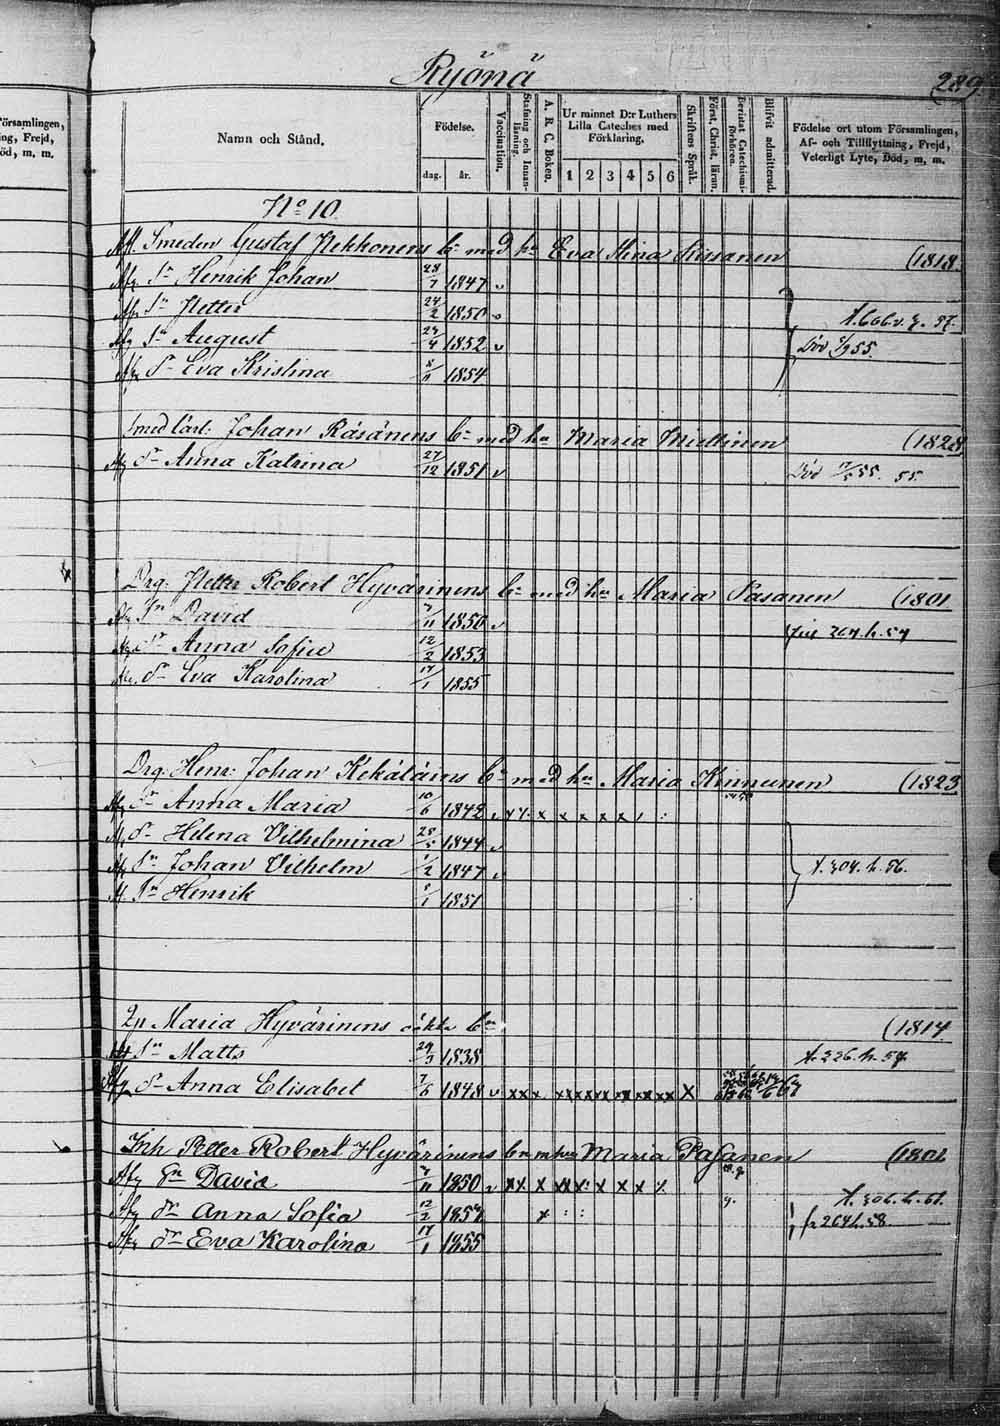 Ryönä 289
Församlingen,
ng, Frejd,
öd, m. m.
Namn och Stånd.
Födelse.
dag. år.
Vaccination.
Stafning och Innanläsning.
A. B. C. Boken.
Ur minnet D:r Luthers Lilla Cateches med Förklaring.
1 2 3 4 5 6
Skriftens Språk.
Först. Christ. läran.
Bevistat Catechismiförhören.
Blifvit admitterad.
Födelse ort utom Församlingen, Af- och Tillflyttning, Frejd, Veterligt Lyte, Död, m. m.
No 10
Smeden Gustaf Hekkonens bn med hu Eva Stina Rissanen (1818.
Sn Henrik Johan 28/7 1847 v
Sn Petter 24/2 1850 v
Sn August 1852 v Död 55.
Dr Eva Kristina 8/11 1854
Smed lärl: Johan Räsänens bn med hu Maria Miettinen (1828)
Dr Anna Katrina 27/12 1851 v Död 55. 55.
Drg: Petter Robert Hyvärinens bn med hu Maria Pasanen (1801
Sn David 7/11 1850 v
Dr Anna Sofia 12/2 1853
Dr Eva Karolina 14/1 1855
Drg: Henr: Johan Kekäläins bn med hu Maria Kinnunen (1823
Dr Anna Maria 10/6 1842 v x x x x x x
Dr Helena Vilhelmina 1844 v
Sn Johan Vilhelm 1/2 1847 v
Sn Henrik 8/1 1851
Maria Hyvärinens oäkta bn (1817.
Sn Matts 29/3 1838 t. 226. h. 57
Dr Anna Elisabet 7/6 1848 v xx x xx xx xx xx xx xx x
Inh Petter Robert Hyvärinens bn m hu Maria Pasanen (1801
Sn David 7/11 1850 v xx x xx x x x x
Dr Anna Sofia 12/2 1857 x : :
Dr Eva Karolina 14/1 1855